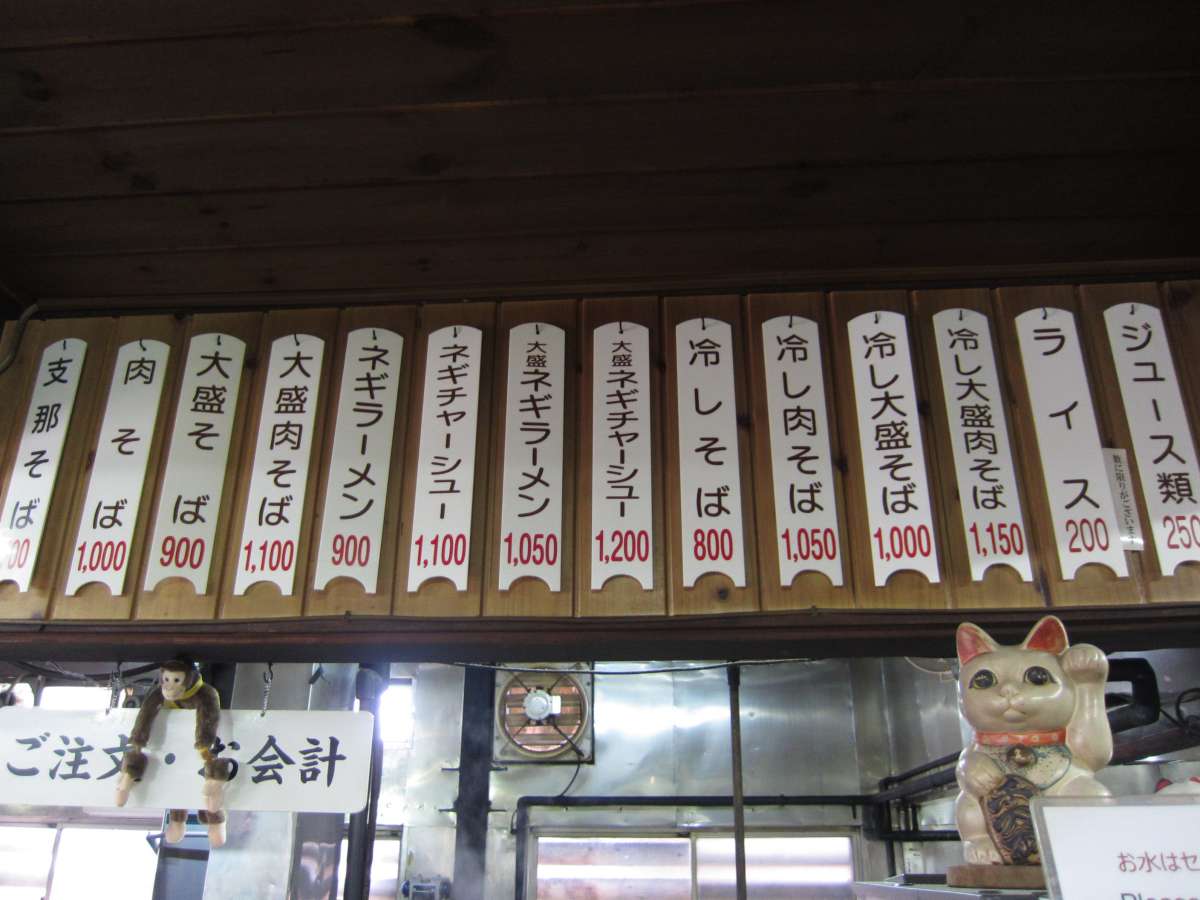 支那そば
肉そば
1,000
大盛そば
900
大盛肉そば
1,100
ネギラーメン
900
ネギチャーシュー
1,100
大盛ネギラーメン
1,050
大盛ネギチャーシュー
1,200
冷しそば
800
冷し肉そば
1,050
冷し大盛そば
1,000
冷し大盛肉そば
1,150
ライス
200
数に限りがございます
ジュース類
250
ご注文・お会計
お水はセ